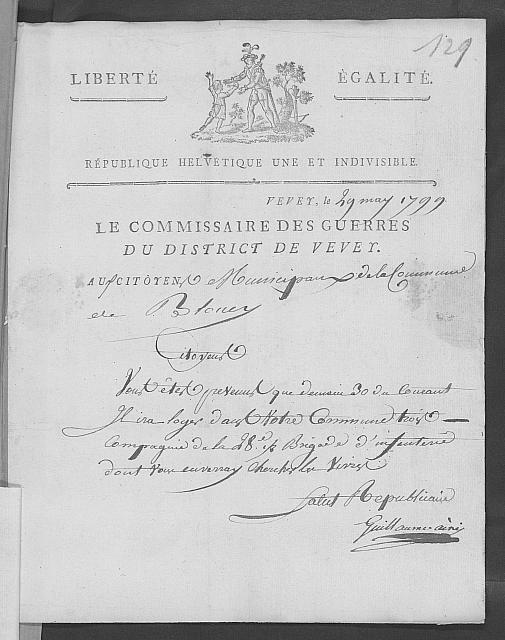 129
LIBERTÉ ÉGALITÉ.
RÉPUBLIQUE HELVÉTIQUE UNE ET INDIVISIBLE.
VEVEY, le 29 may 1799
LE COMMISSAIRE DES GUERRES
DU DISTRICT DE VEVEY.
AUX CITOYENS Municipaux de la Commune
de Blonay
Citoyens
Vous êtes prevenus que demain 30 du Courant
Il ira loger dans Votre Commune trois
Compagnie de la Brigade d'infanterie
dont Vous enverray chercher les Vivres
Salut Republicain
Guillaume ainé